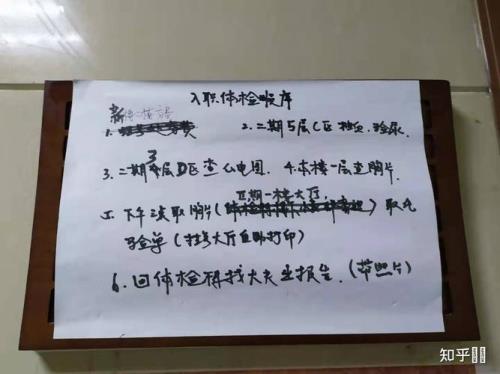 入职体检顺序
新
1.
2.二期5层C区抽血,验尿.
3
3.二期层D区查心电图. 4.本楼一层查胸片.
二期一楼大厅,
5 下午2点取胸片( )取化
验单(挂号大厅自助打印)
6.回体检科找大夫出报告.(带照片)
知乎